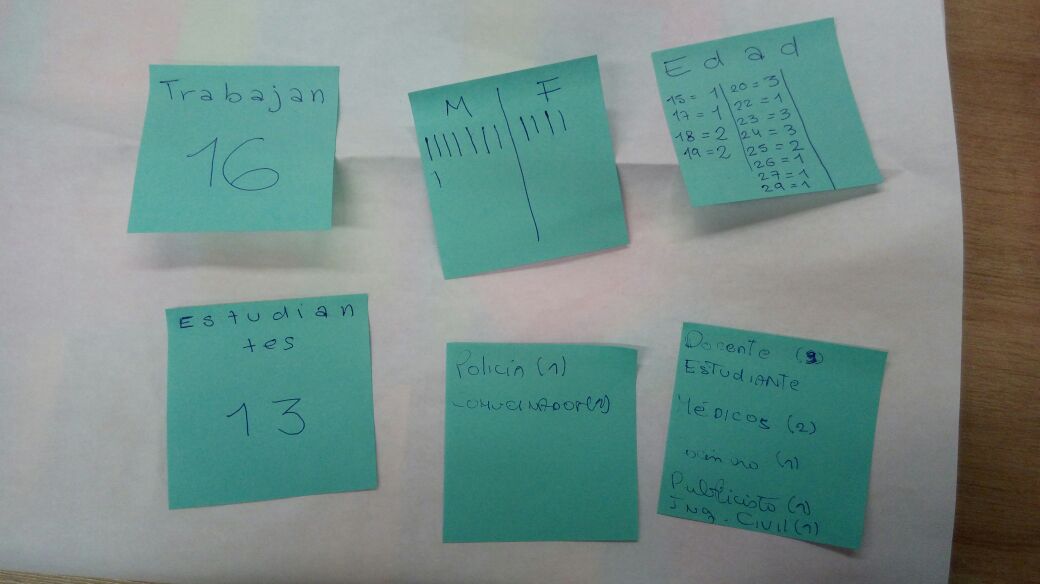 Trabajan
16
M F
Edad
15 = 1
17 = 1
18 = 2
19 = 2
20 = 3
22 = 1
23 = 3
24 = 3
25 = 2
26 = 1
27 = 1
29 = 1
Estudian
tes
13
Policía (1)
Docente
ESTUDIANTE
MÉDICOS (2)
(1)
Publicista (1)
Ing. Civil (1)